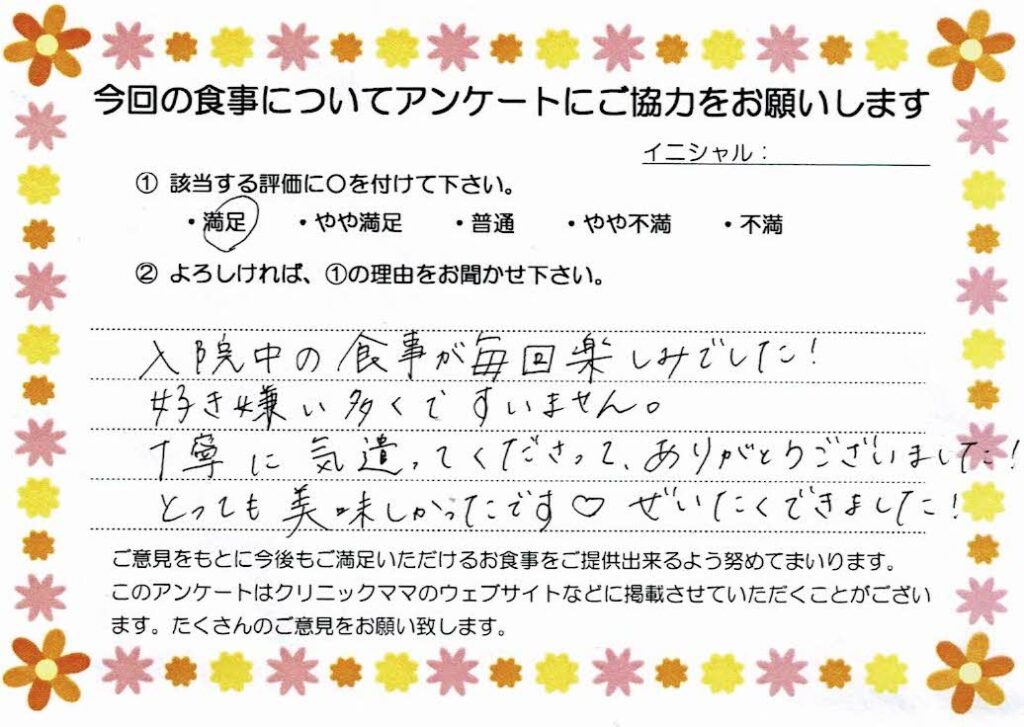 今回の食事についてアンケートにご協力をお願いします
イニシャル：
① 該当する評価に〇を付けて下さい。
・満足 ・やや満足 ・普通 ・やや不満 ・不満
② よろしければ、①の理由をお聞かせ下さい。
入院中の食事が毎回楽しみでした！
好き嫌い多くですいません。
丁寧に気遣ってくださって、ありがとうございました！
とっても美味しかったです♡ ぜいたくできました！
ご意見をもとに今後もご満足いただけるお食事をご提供出来るよう努めてまいります。
このアンケートはクリニックママのウェブサイトなどに掲載させていただくことがござい
ます。たくさんのご意見をお願い致します。